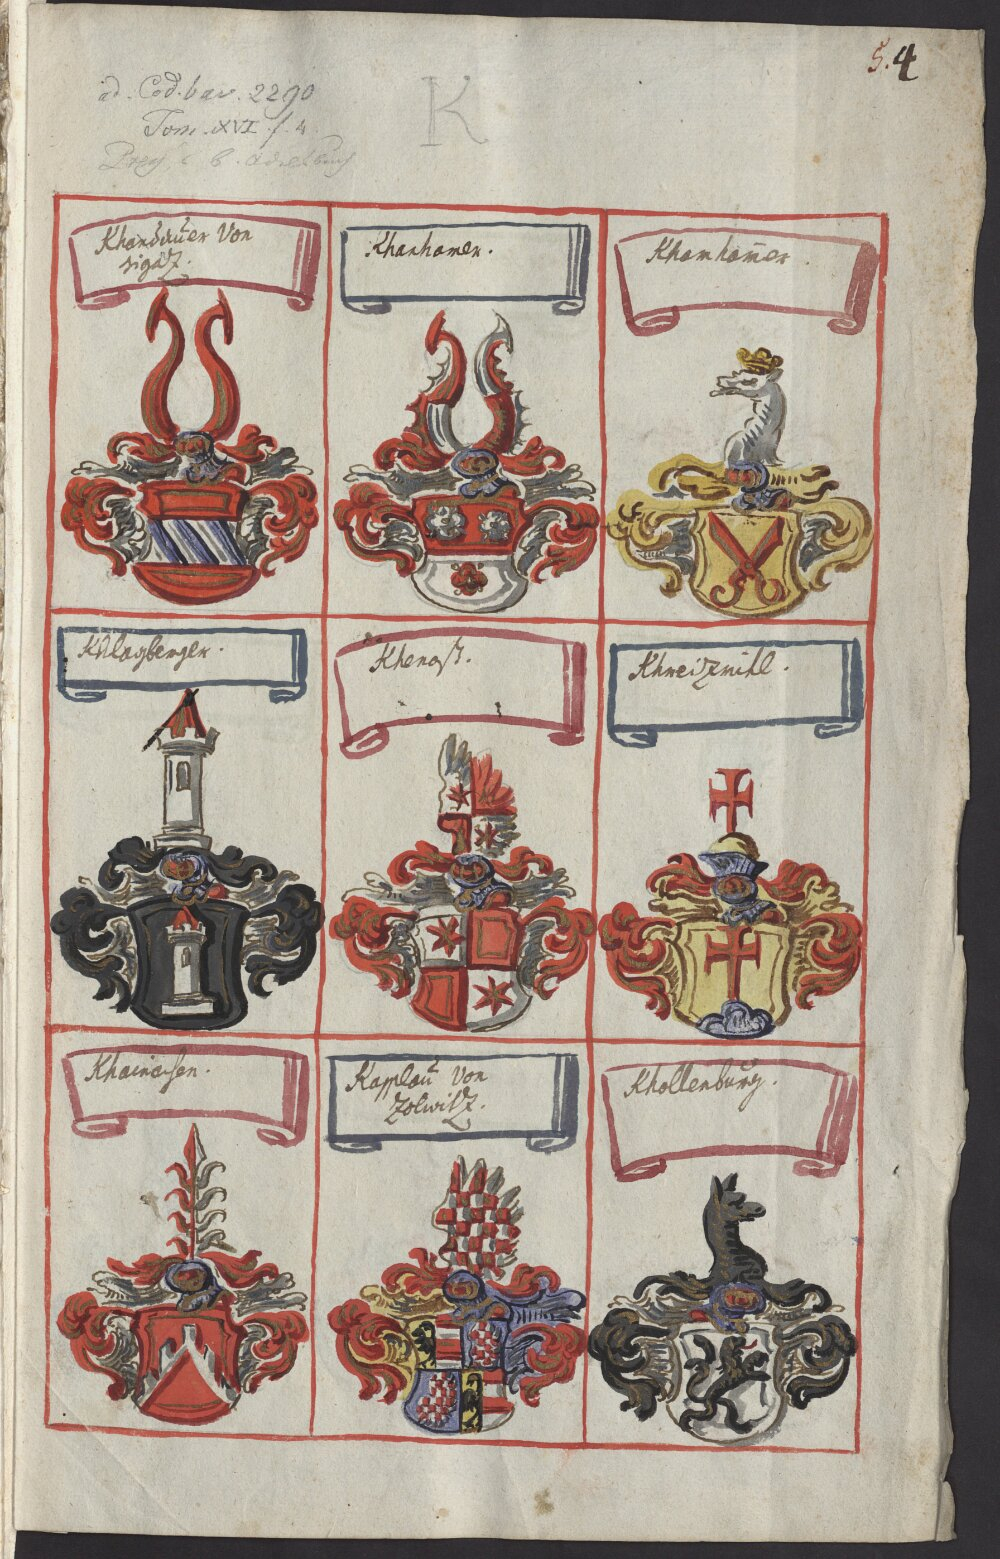 5. 4
ad. Cod. bav. 2290
Tom. XVI f. 4
K
Khandauer Von
Khanhamer.
Khamhamer
Khlagberger.
Khenast.
Khreitzmihl.
Khaineisen.
Kaplau Von
Zolwitz.
Khollenburg.